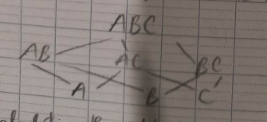 ABC
AB AC BC
A B C